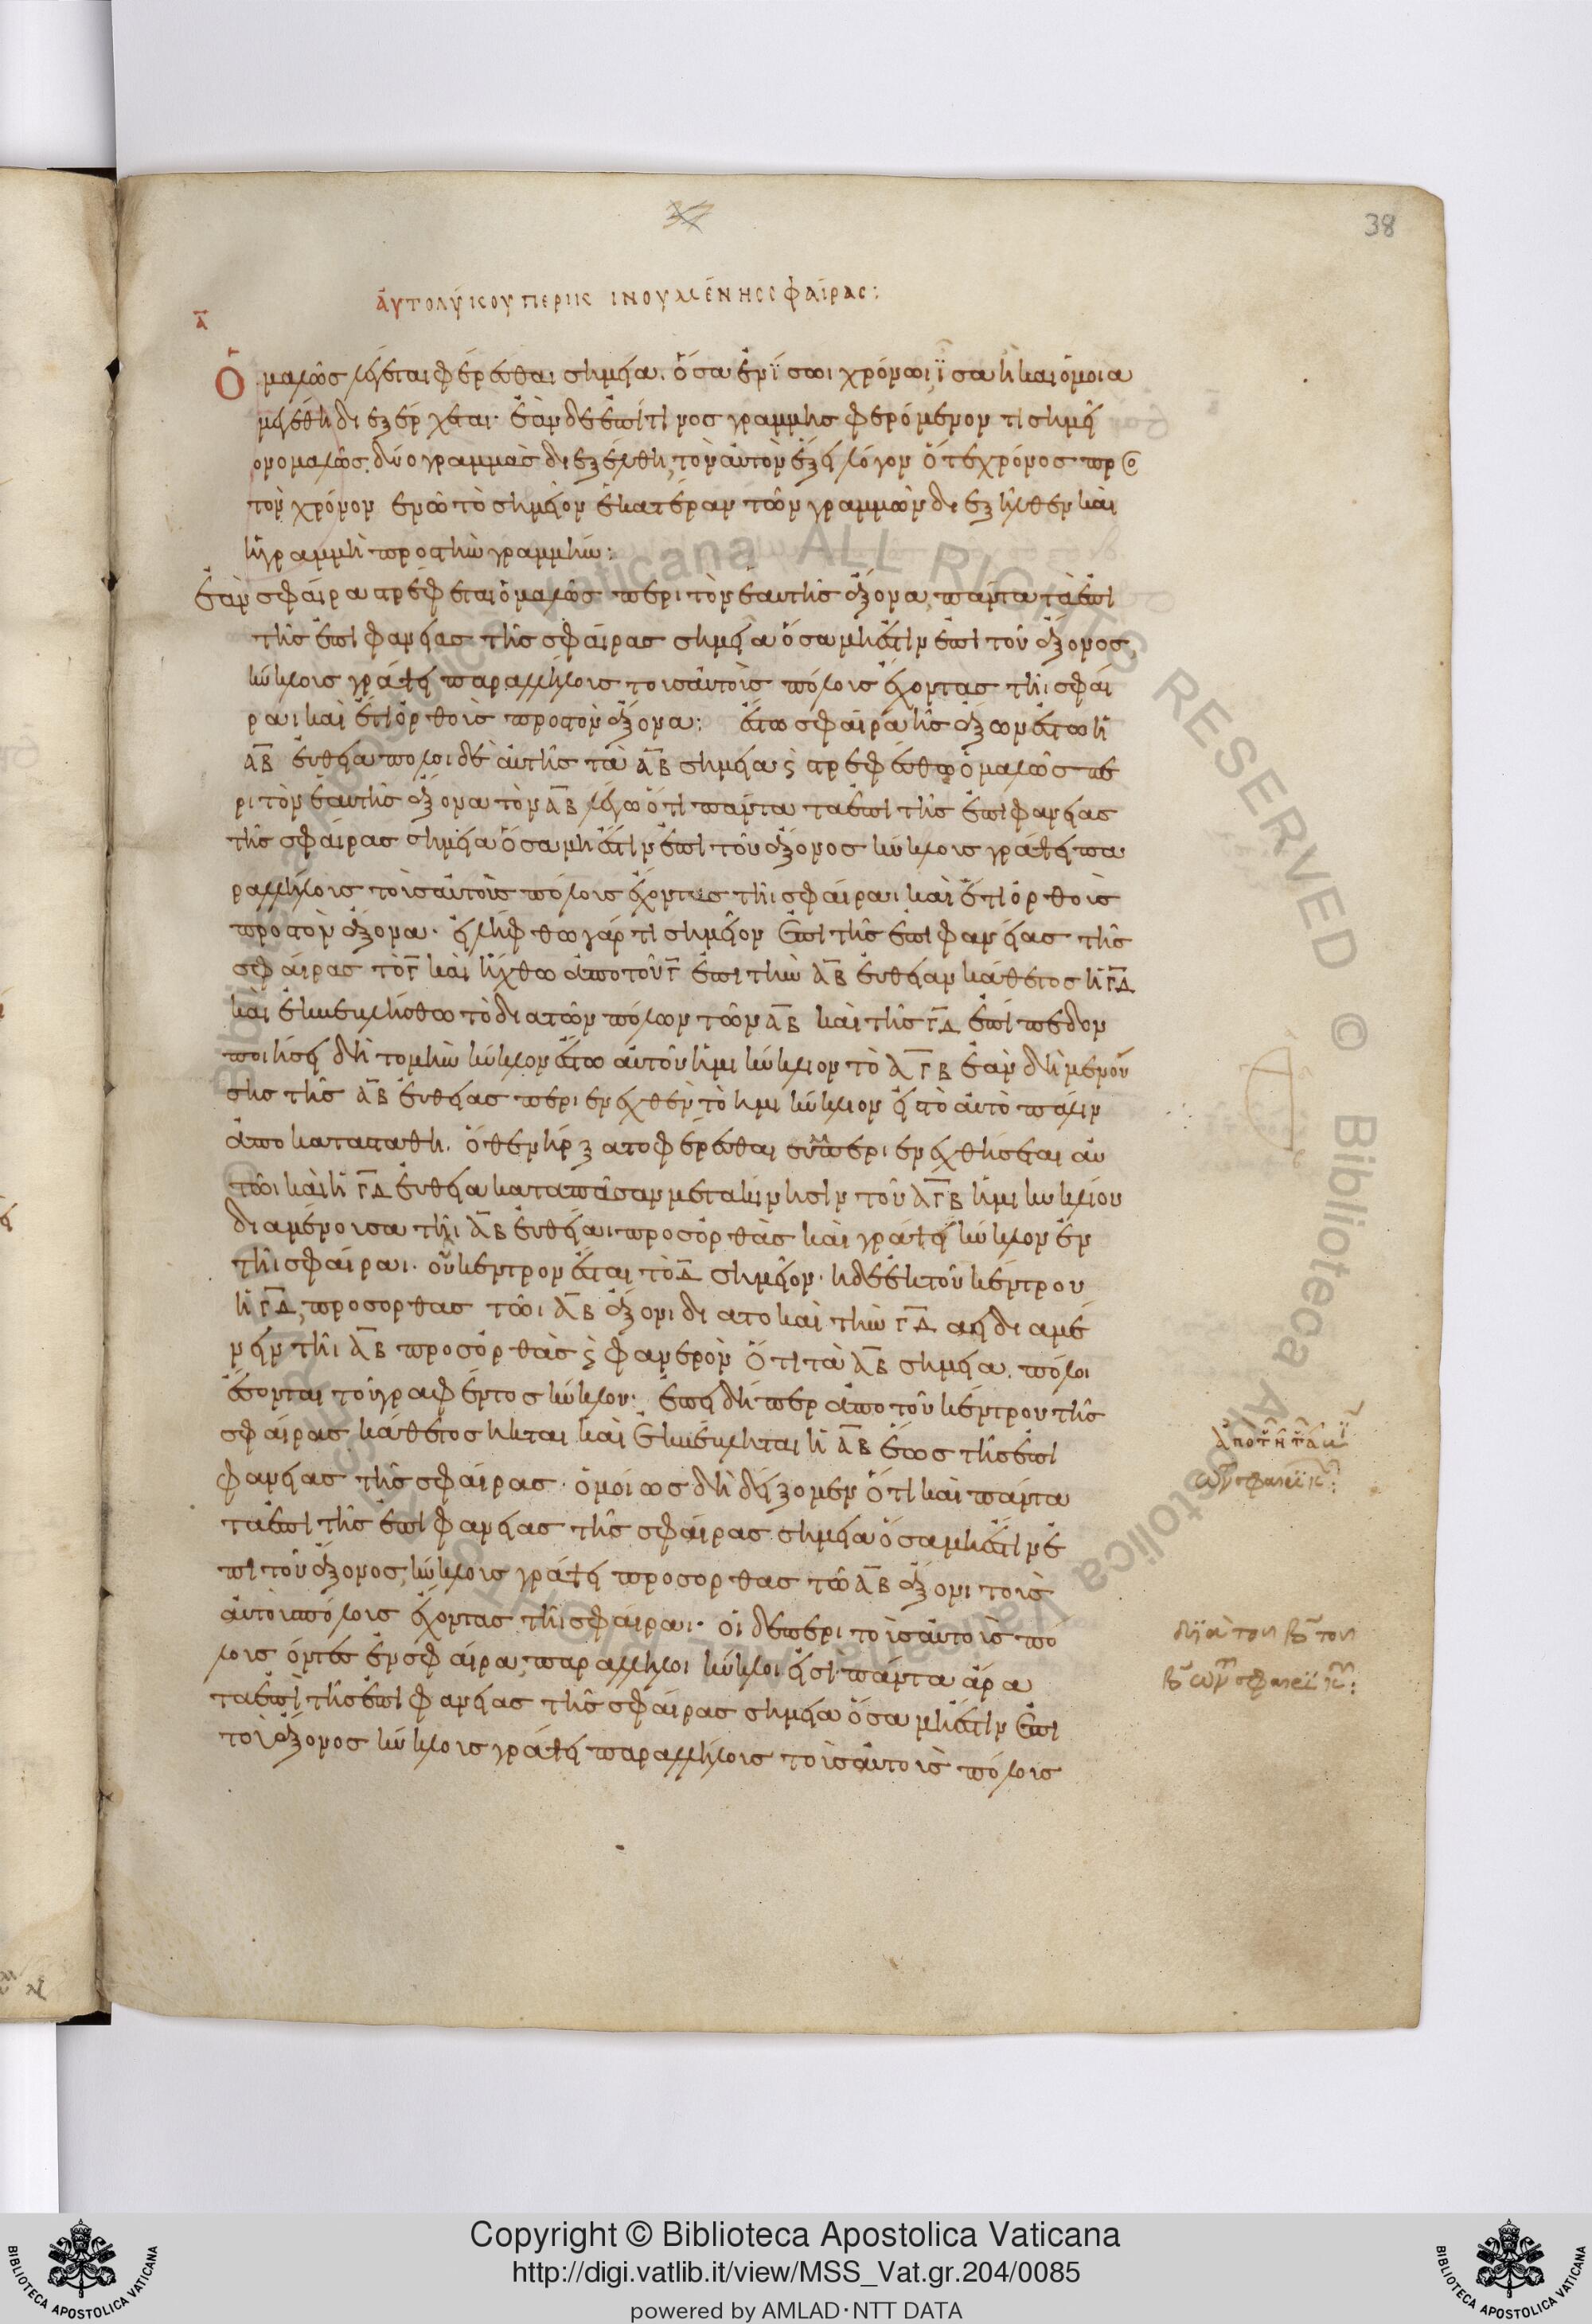 38
ΑΥΤΟΛΥΚΟΥ ΠΕΡΙ ΚΙΝΟΥΜΕΝΗΣ ΣΦΑΙΡΑΣ:
Α
Ὁμαλῶς λέγεται φέρεσθαι σημεῖα. ὅσα ἐν ἴσωι χρόνωι ἴσα ἢ καὶ ὅμοια
μεγέθη διεξέρχεται· ἐὰν δὲ ἐπί τινος γραμμῆς φερόμενόν τι σημεῖ
ον ὁμαλῶς. δύο γραμμὰς διεξέλθη, τὸν αὐτὸν ἕξει λόγον ὅτε χρόνος πρὸς
τὸν χρόνον ἐν ῶ τὸ σημεῖον ἑκατέραν τῶν γραμμῶν διεξῆλθεν καὶ
ἡ γραμμὴ πρὸς τὴν γραμμήν:
ἐὰν σφαῖρα στρέφεται ὁμαλῶς περὶ τὸν ἑαυτῆς ἄξονα, πάντα τὰ ἐπὶ
τῆς ἐπιφανείας τῆς σφαίρας σημεῖα ὅσα μή ἐστιν ἐπὶ τοῦ ἄξονος,
κύκλους γράψει παραλλήλους τοὺς αὐτοὺς πόλους ἔχοντας τῆι σφαί
ραι καὶ ἔτι ὀρθοὺς πρὸς τὸν ἄξονα: ἔστω σφαῖρα ἧς ἄξων ἔστω ἡ
ΑΒ εὐθεῖα πόλοι δὲ αὐτῆς τὰ ΑΒ σημεῖα ϛ στρεφέσθω ὁμαλῶς πε
ρὶ τὸν ἑαυτῆς ἄξονα τὸν ΑΒ λέγω ὅτι πάντα τὰ ἐπὶ τῆς ἐπιφανείας
τῆς σφαίρας σημεῖα ὅσα μή ἐστιν ἐπὶ τοῦ ἄξονος κύκλους γράψει πα
ραλλήλους τοὺς αὐτοὺς πόλους ἔχοντας τῆι σφαίραι καὶ ἔτι ὀρθοὺς
πρὸς τὸν ἄξονα. εἰλήφθω γάρ τι σημεῖον ἐπὶ τῆς ἐπιφανείας τῆς
σφαίρας τὸ Γ καὶ ἤχθω ἀπὸ τοῦ Γ ἐπὶ τὴν ΑΒ εὐθεῖαν κάθετος ἡ ΓΔ
καὶ ἐκκεκλήσθω τὸ διὰ τῶν πόλων τῶν ΑΒ καὶ τῆς ΓΔ ἐπίπεδον
ποιήσει δὴ τομὴν κύκλον ἔστω αὐτοῦ ἡμικύκλιον τὸ ΑΓΒ ἐὰν δὴ μενού
σης τῆς ΑΒ εὐθείας περιενεχθὲν τὸ ἡμικύκλιον εἰς τὸ αὐτὸ πάλιν
ἀποκατασταθῆ. ὅθεν ἤρξατο φέρεσθαι συμπεριενεχθήσεται αὐ
τῶι καὶ ἡ ΓΔ εὐθεῖα κατὰ πᾶσαν μετακίνησιν τοῦ ΑΓΒ ἡμικυκλίου
διαμένουσα τῆι ΑΒ εὐθείαι πρὸς ὀρθὰς καὶ γράψει κύκλον ἐν
τῆι σφαίραι. οὗ κέντρον ἔσται τὸ Δ σημεῖον. ἡ δὲ ἐκ τοῦ κέντρου
ἡ ΓΔ, πρὸς ὀρθὰς τῶι ΑΒ ἄξονι διὰ τὸ καὶ τὴν ΓΔ ἀεὶ διαμέ
νειν τῆι ΑΒ πρὸς ὀρθὰς ϛ φανερὸν ὅτι τὰ ΑΒ σημεῖα. πόλοι
ἔσονται τοῦ γραφέντος κύκλου· ἐπειδήπερ ἀπὸ τοῦ κέντρου τῆς
σφαίρας κάθετος ἦκται καὶ ἐκκέκληται ἡ ΑΒ ἕως τῆς ἐπι
φανείας τῆς σφαίρας. ὁμοίως δὴ δείξομεν ὅτι καὶ πάντα
τὰ ἐπὶ τῆς ἐπιφανείας τῆς σφαίρας σημεῖα ὅσα μή ἐστιν ἐ
πὶ τοῦ ἄξονος, κύκλους γράψει πρὸς ὀρθὰς τῶ ΑΒ ἄξονι τοὺς
αὐτοὺς πόλους ἔχοντας τῆι σφαίραι. οἱ δὲ περὶ τοὺς αὐτοὺς πό
λους ὄντες ἐν σφαίρα, παράλληλοι κύκλοι εἰσὶ. πάντα ἄρα
τὰ ἐπὶ τῆς ἐπιφανείας τῆς σφαίρας σημεῖα ὅσα μή ἐστιν ἐπὶ
τοῦ ἄξονος κύκλους γράψει παραλλήλους τοὺς αὐτοὺς πόλους
διὰ τοῦ Β τοῦ
Β τῶν σφαιρικῶν:
Copyright © Biblioteca Apostolica Vaticana
http://digi.vatlib.it/view/MSS_Vat.gr.204/0085
powered by AMLAD·NTT DATA
BIBLIOTECA APOSTOLICA VATICANA
BIBLIOTECA APOSTOLICA VATICANA